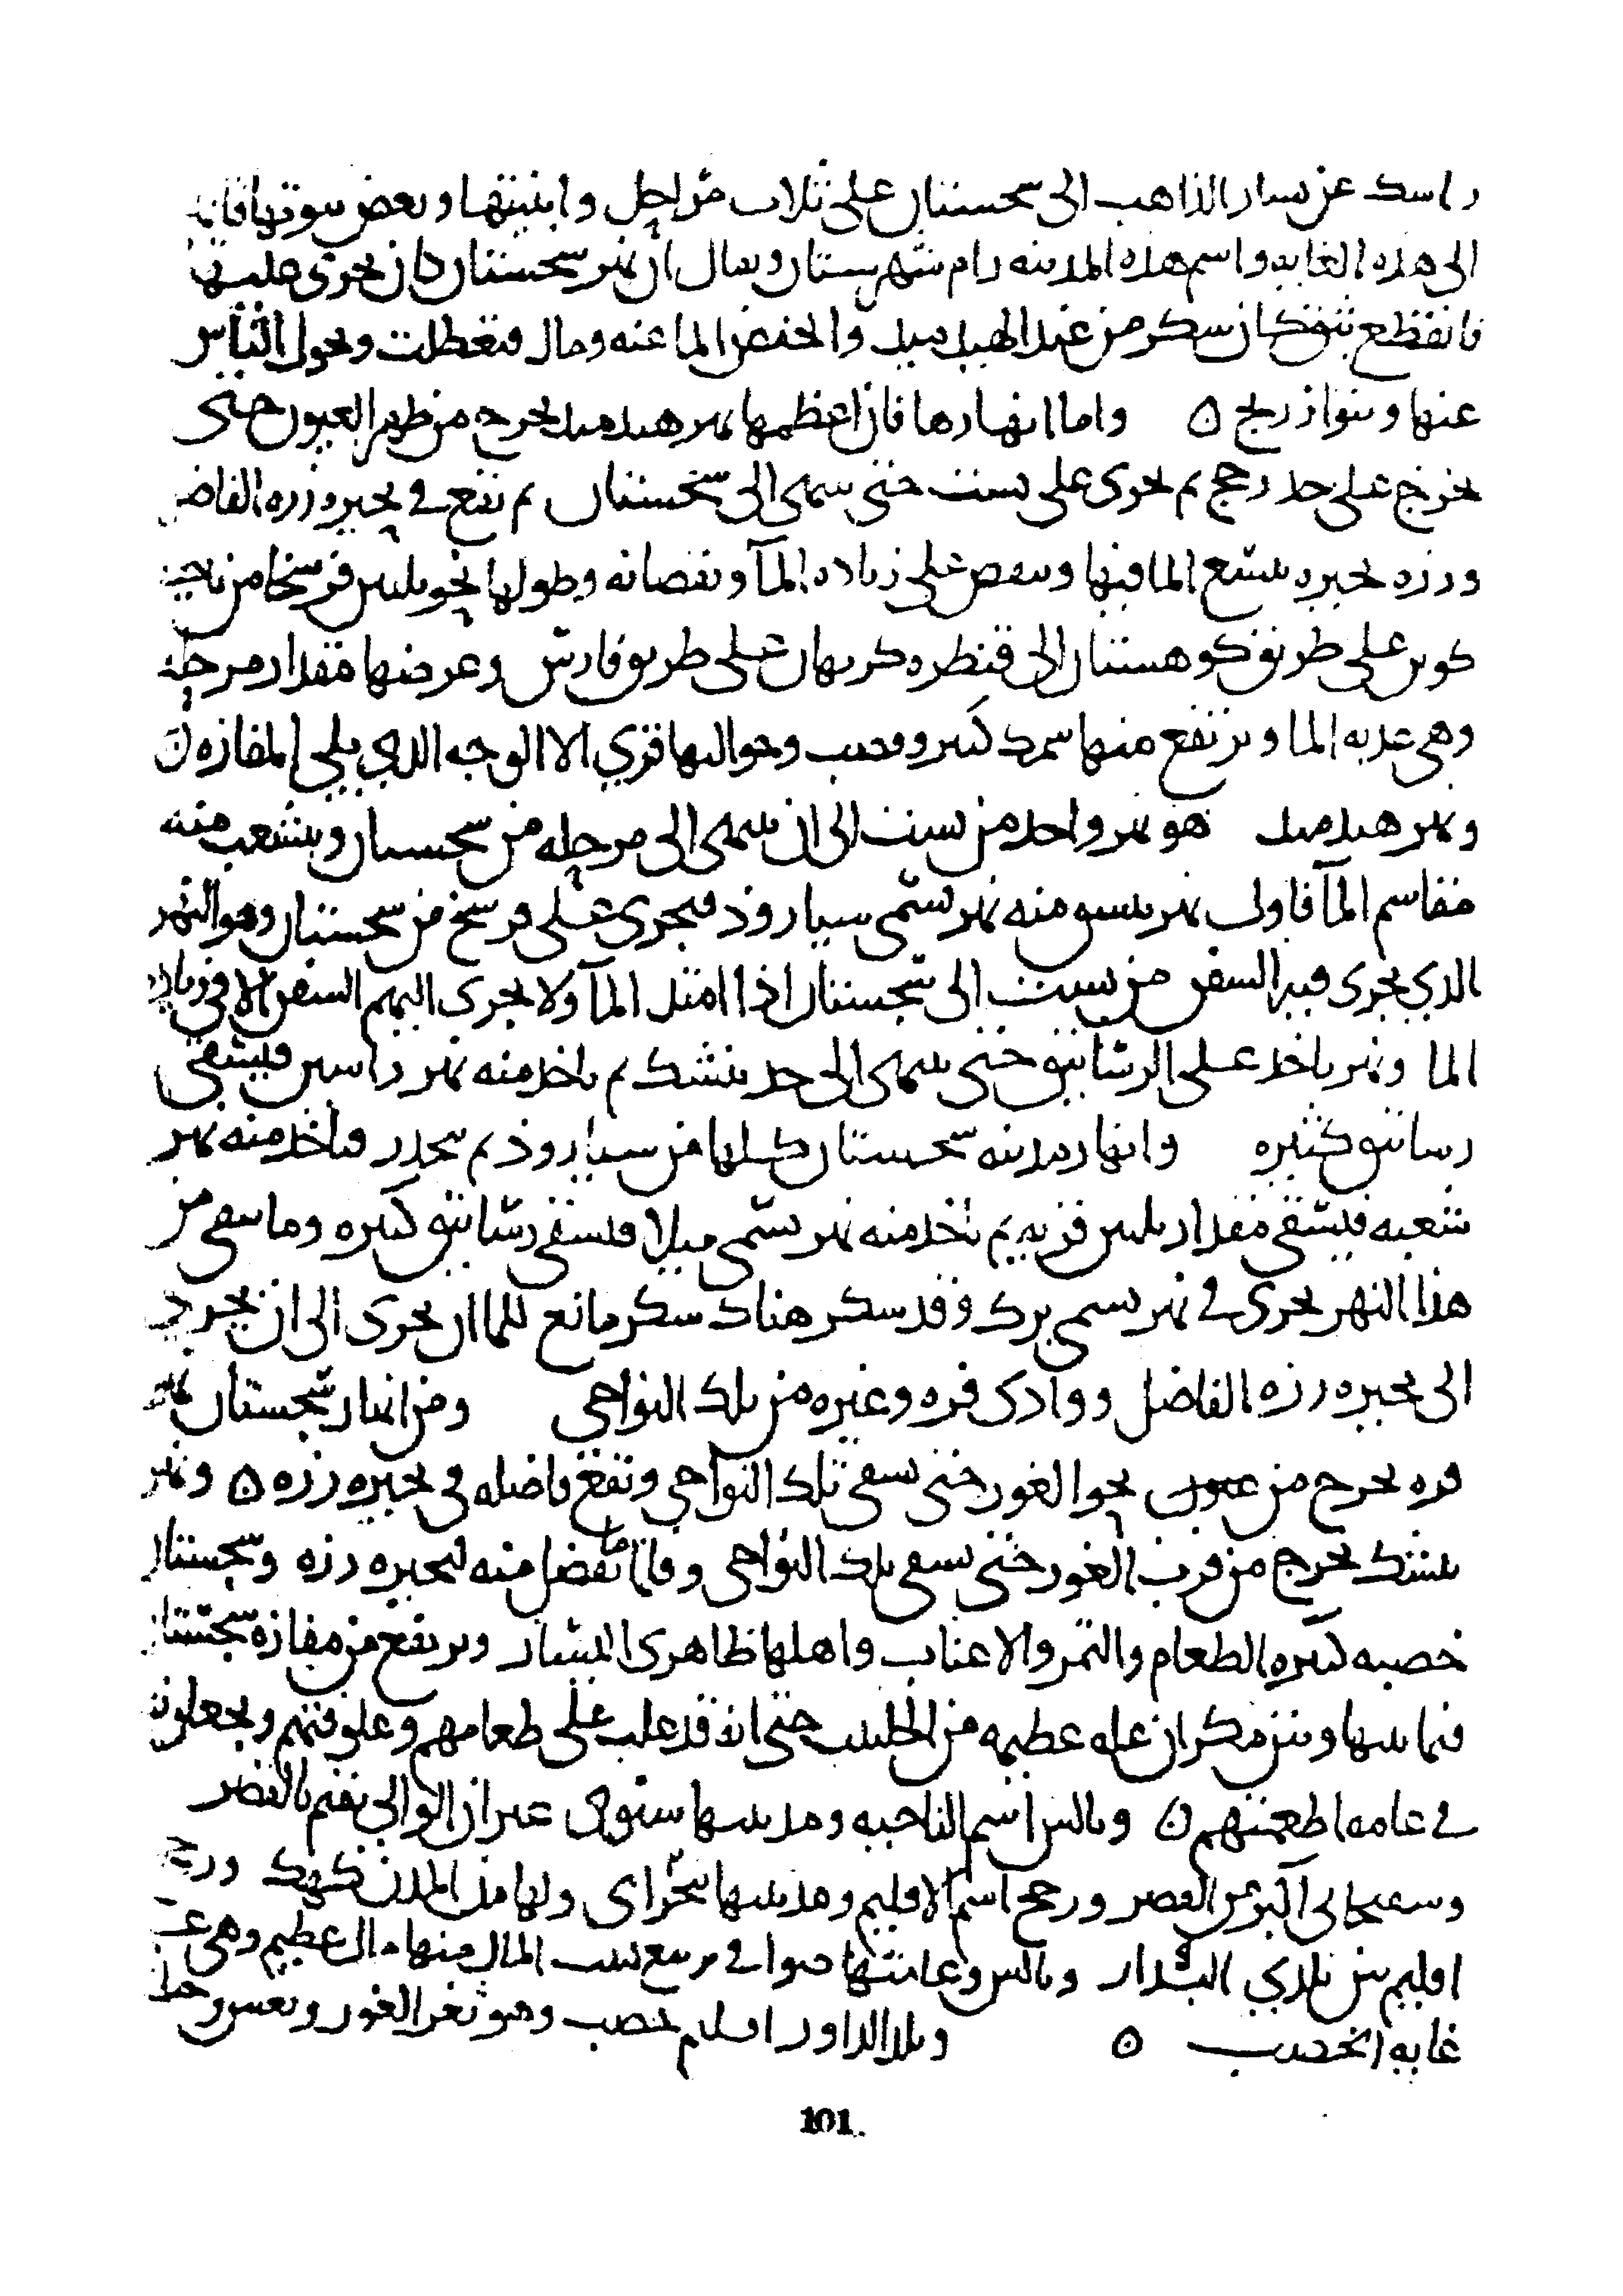 راسك عن يسار الذاهب الى سجستان على ثلاث مراحل وابنيتها وبعض بيوتها قائمة
الى هذه الغايه واسم هذه المدينه رام شهرستان ويقال ان نهر سجستان كان يجرى عليها
فانقطع بثق كان سكر من عند الهيد ميد وانخفض الما عنه ومال فتعطلت وتحول الناس
عنها وبنوا زرنج ه واما انهارها فان اعظمها نهر هيد ميد يخرج من ظهر الغور حتى
يخرج على حد رخج ثم يجرى على بست حتى ينتهى الى سجستان ثم يقع فى بحيره زره الفاضل
وزره بحيره يتسع الما فيها وينقص على زياده المآ ونقصانه وطولها نحو ثلثين فرسخا من ناحية
كوين على طريق كوهستان الى قنطره كرمان على طريق فارس وعرضها مقدار مرحله
وهى عذبه الما ويرتفع منها سمك كثير وقصب وحواليها قرى الا الوجه الذي يلي المفازه ه
ونهر هيد ميد هو نهر واحد من بست الى ان ينتهى الى مرحله من سجستان ويتشعب منه
مقاسم المآ فاول نهر ينبثق منه نهر يسمى سيا روذ فيجرى على فرسخ من سجستان وهو النهر
الذي يجرى فيه السفن من بست الى سجستان اذا امتد المآ ولا يجرى اليهم السفن الا فى زياده
الما ونهر ياخذ على الرساتيق حتى ينتهى الى حد نيشك ثم ياخذ منه نهر فيسقى
رساتيق كثيره وانهار مدينه سجستان كلها من سيا روذ ثم ينحدر فياخذ منه نهر
شعبه فيسقى مقدار ثلثين قريه ثم ياخذ منه نهر يسمى ميلا فيسقى رساتيق كثيره وما يبقى من
هذا النهر يجرى فى نهر يسمى بزك وقد سكر هناك سكر مانع للما ان يجرى الى ان يجرى
الى بحيره زره الفاضل ووادى فره وغيره من تلك النواحى ومن انهار سجستان نهر
فره يخرج من نحو الغور حتى يسقى تلك النواحي وتقع فاضله فى بحيره زره ه ونهر
نيشك يخرج من قرب الغور حتى يسقى تلك النواحى وقلما تفضل منه لبحيره زره وسجستان
خصبه كثيره الطعام والتمر والاعناب واهلها ظاهرى اليسار ويرتفع من مفازه سجستان
فيما بينها وبين مكران غله عظيمه من الحلتيت حتى انه قد غلب على طعامهم ويجعلونه
فى عامه اطعمتهم ه وبالس اسم الناحيه ومدينتها سيوى غير ان الوالى يقيم بالقصر
اكبر من القصر ورخج اسم الاقليم ومدينتها بنجواى ولها من المدن كهك ورخج
اقليم بين بلدي الداور وبالس وعامتها صوافى يرتفع لبيت المال منها مال عظيم وهى على
غايه الخصب ه وبلد الداور اقليم خصب وهو ثغر الغور
101